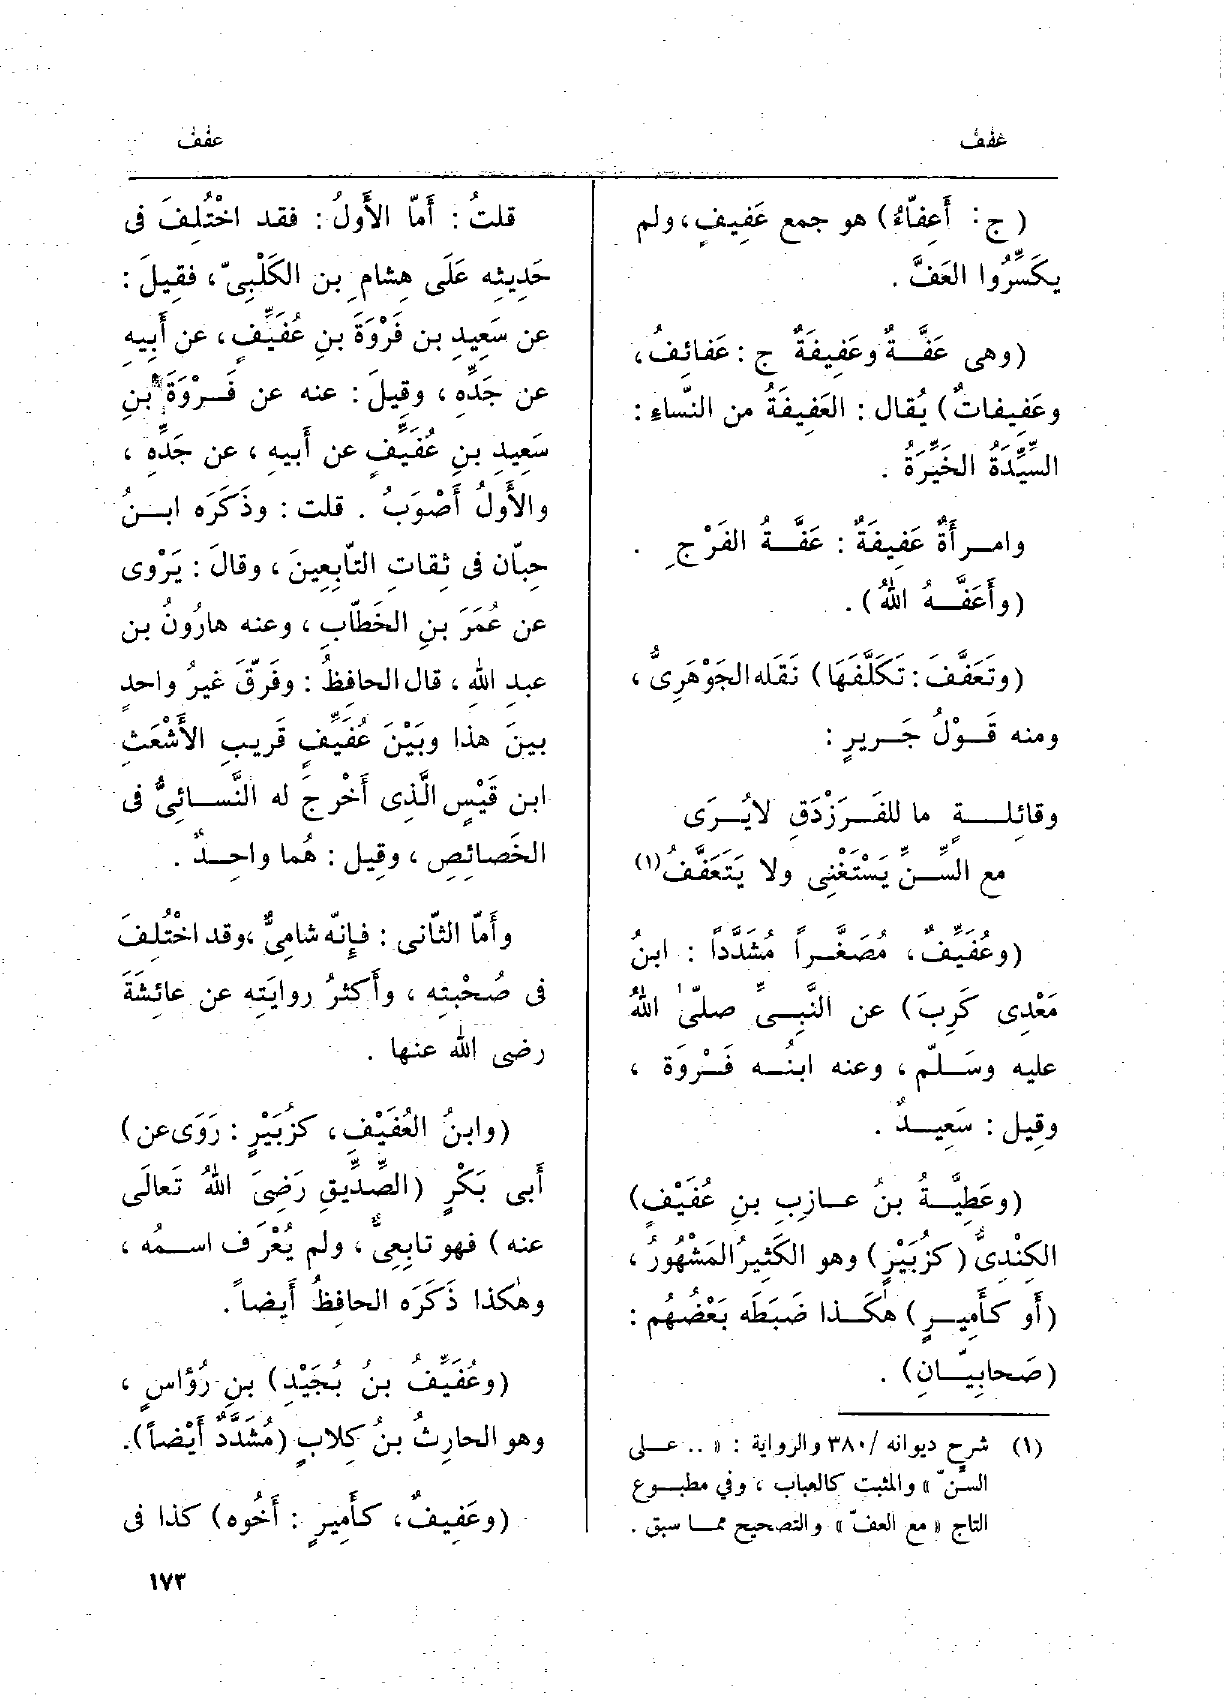 عفف
عفف
(ج: أَعِفّاءُ) هو جمع عَفِيفٍ، ولم
يكَسِّرُوا العَفَّ .
(وهى عَفَّةٌ وعَفِيفَةٌ ج : عَفائفُ،
وعَفِيفاتٌ) يُقال : العَفِيفَةُ من النّساءِ :
السَّيِّدَةُ الخَيِّرَةُ .
وامرأَةٌ عَفِيفَةٌ : عَفَّةُ الفَرْجِ .
(وأَعَفَّهُ اللهُ) .
(وتَعَفَّفَ : تَكَلَّفَها) نَقَله الجَوْهَرِىُّ ،
ومنه قَوْلُ جَرِيرٍ :
وقائِلةٍ ما للفَرَزْدَقِ لا يُرَى
مع السِّنِّ يَسْتَغْنِى ولا يَتَعَفَّفُ(١)
(وعُفَيِّفٌ، مُصَغَّراً مُشَدَّداً : ابنُ
مَعْدِى كَرِبَ) عن النَّبِىِّ صلّى اللهُ
عليه وسَلّم ، وعنه ابنُه فَرْوَة ،
وقِيل : سَعِيدٌ .
(وعَطِيَّةُ بنُ عازِبِ بنِ عُفَيْفٍ)
الكِنْدِىُّ (كزُبَيْرٍ) وهو الكَثِيرُ المَشْهُورُ ،
(أو كأَمِيرٍ) هٰكَذا ضَبَطَه بَعْضُهُم :
(صَحابِيّانِ) .
(١) شرح ديوانه / ٣٨٠ والرواية : « .. على
السنّ » والمثبت كالعباب ، وفي مطبوع
التاج « مع العفّ » والتصحيح مما سبق .
قلتُ : أَمّا الأَولُ : فقد اخْتُلِفَ فى
حَدِيثِه عَلَى هِشامِ بن الكَلْبِىّ ، فقِيلَ :
عن سَعِيدِ بن فَرْوَةَ بنِ عُفَيِّفٍ ، عن أَبِيهِ
عن جَدِّهِ ، وقِيلَ : عنه عن فَرْوَةَ بنِ
سَعِيدِ بنِ عُفَيِّفٍ عن أَبيهِ ، عن جَدِّهِ ،
والأَولُ أَصْوَبُ . قلت : وذَكَرَه ابنُ
حِبّان فى ثِقاتِ التّابِعِينَ ، وقالَ : يَرْوِى
عن عُمَرَ بنِ الخَطّابِ ، وعنه هارُونُ بن
عبدِ اللهِ ، قال الحافِظُ : وفَرّقَ غيرُ واحدٍ
بينَ هذا وبَيْنَ عُفَيِّفٍ قَرِيبِ الأَشْعَثِ
ابن قَيْسٍ الَّذِى أَخْرجَ له النَّسائِىُّ فى
الخَصائِصِ ، وقِيل : هُما واحِدٌ .
وأَمّا الثّانى : فإِنّه شامِىٌّ ، وقد اخْتُلِفَ
فى صُحْبتِه ، وأَكثرُ روايَتِه عن عائِشَةَ
رضى الله عنها .
(وابنُ العُفَيْفِ ، كزُبَيْرٍ : رَوَى عن)
أَبى بَكْرٍ (الصِّدِّيقِ رَضِىَ اللهُ تَعالَى
عنه) فهو تابِعِىٌّ ، ولم يُعْرَف اسمُه ،
وهٰكذا ذَكَرَه الحافِظُ أَيضاً .
(وعُفَيِّفُ بنُ بُجَيْدِ) بنِ رُؤاسٍ ،
وهو الحارِثُ بنُ كِلابٍ (مُشَدَّدٌ أَيْضاً).
(وعَفِيفٌ، كأَمِيرٍ : أَخُوه) كذا فى
١٧٣